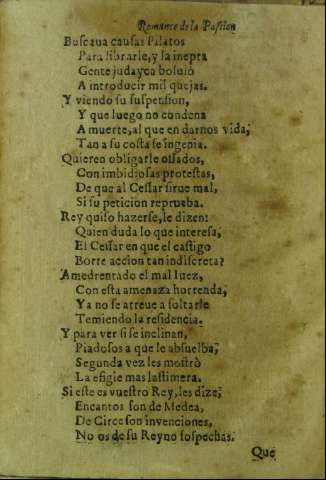 Romance de la Passion
Buscaua causas Pilatos
Para librarle, y la inepta
Gente judayca boluiò
A introducir mil quejas.
Y viendo su suspension,
Y que luego no condena
A muerte, al que en darnos vida,
Tan a su costa se ingenia.
Quieren obligarle ossados,
Con imbidiosas protestas,
De que al Cessar sirue mal,
Si su peticion reprueba.
Rey quiso hazerse, le dizen:
Quien duda lo que interesa,
El Cessar en que el castigo
Borre accion tan indiscreta?
Amedrentado el mal Iuez,
Con esta amenaza horrenda,
Ya no se atreue a soltarle
Temiendo la residencia.
Y para ver si se inclinan,
Piadosos a que le absuelba,
Segunda vez les mostrò
La efigie mas lastimera.
Si este es vuestro Rey, les dize,
Encantos son de Medea,
De Circe son invenciones,
No os de su Reyno sospechas.
Que